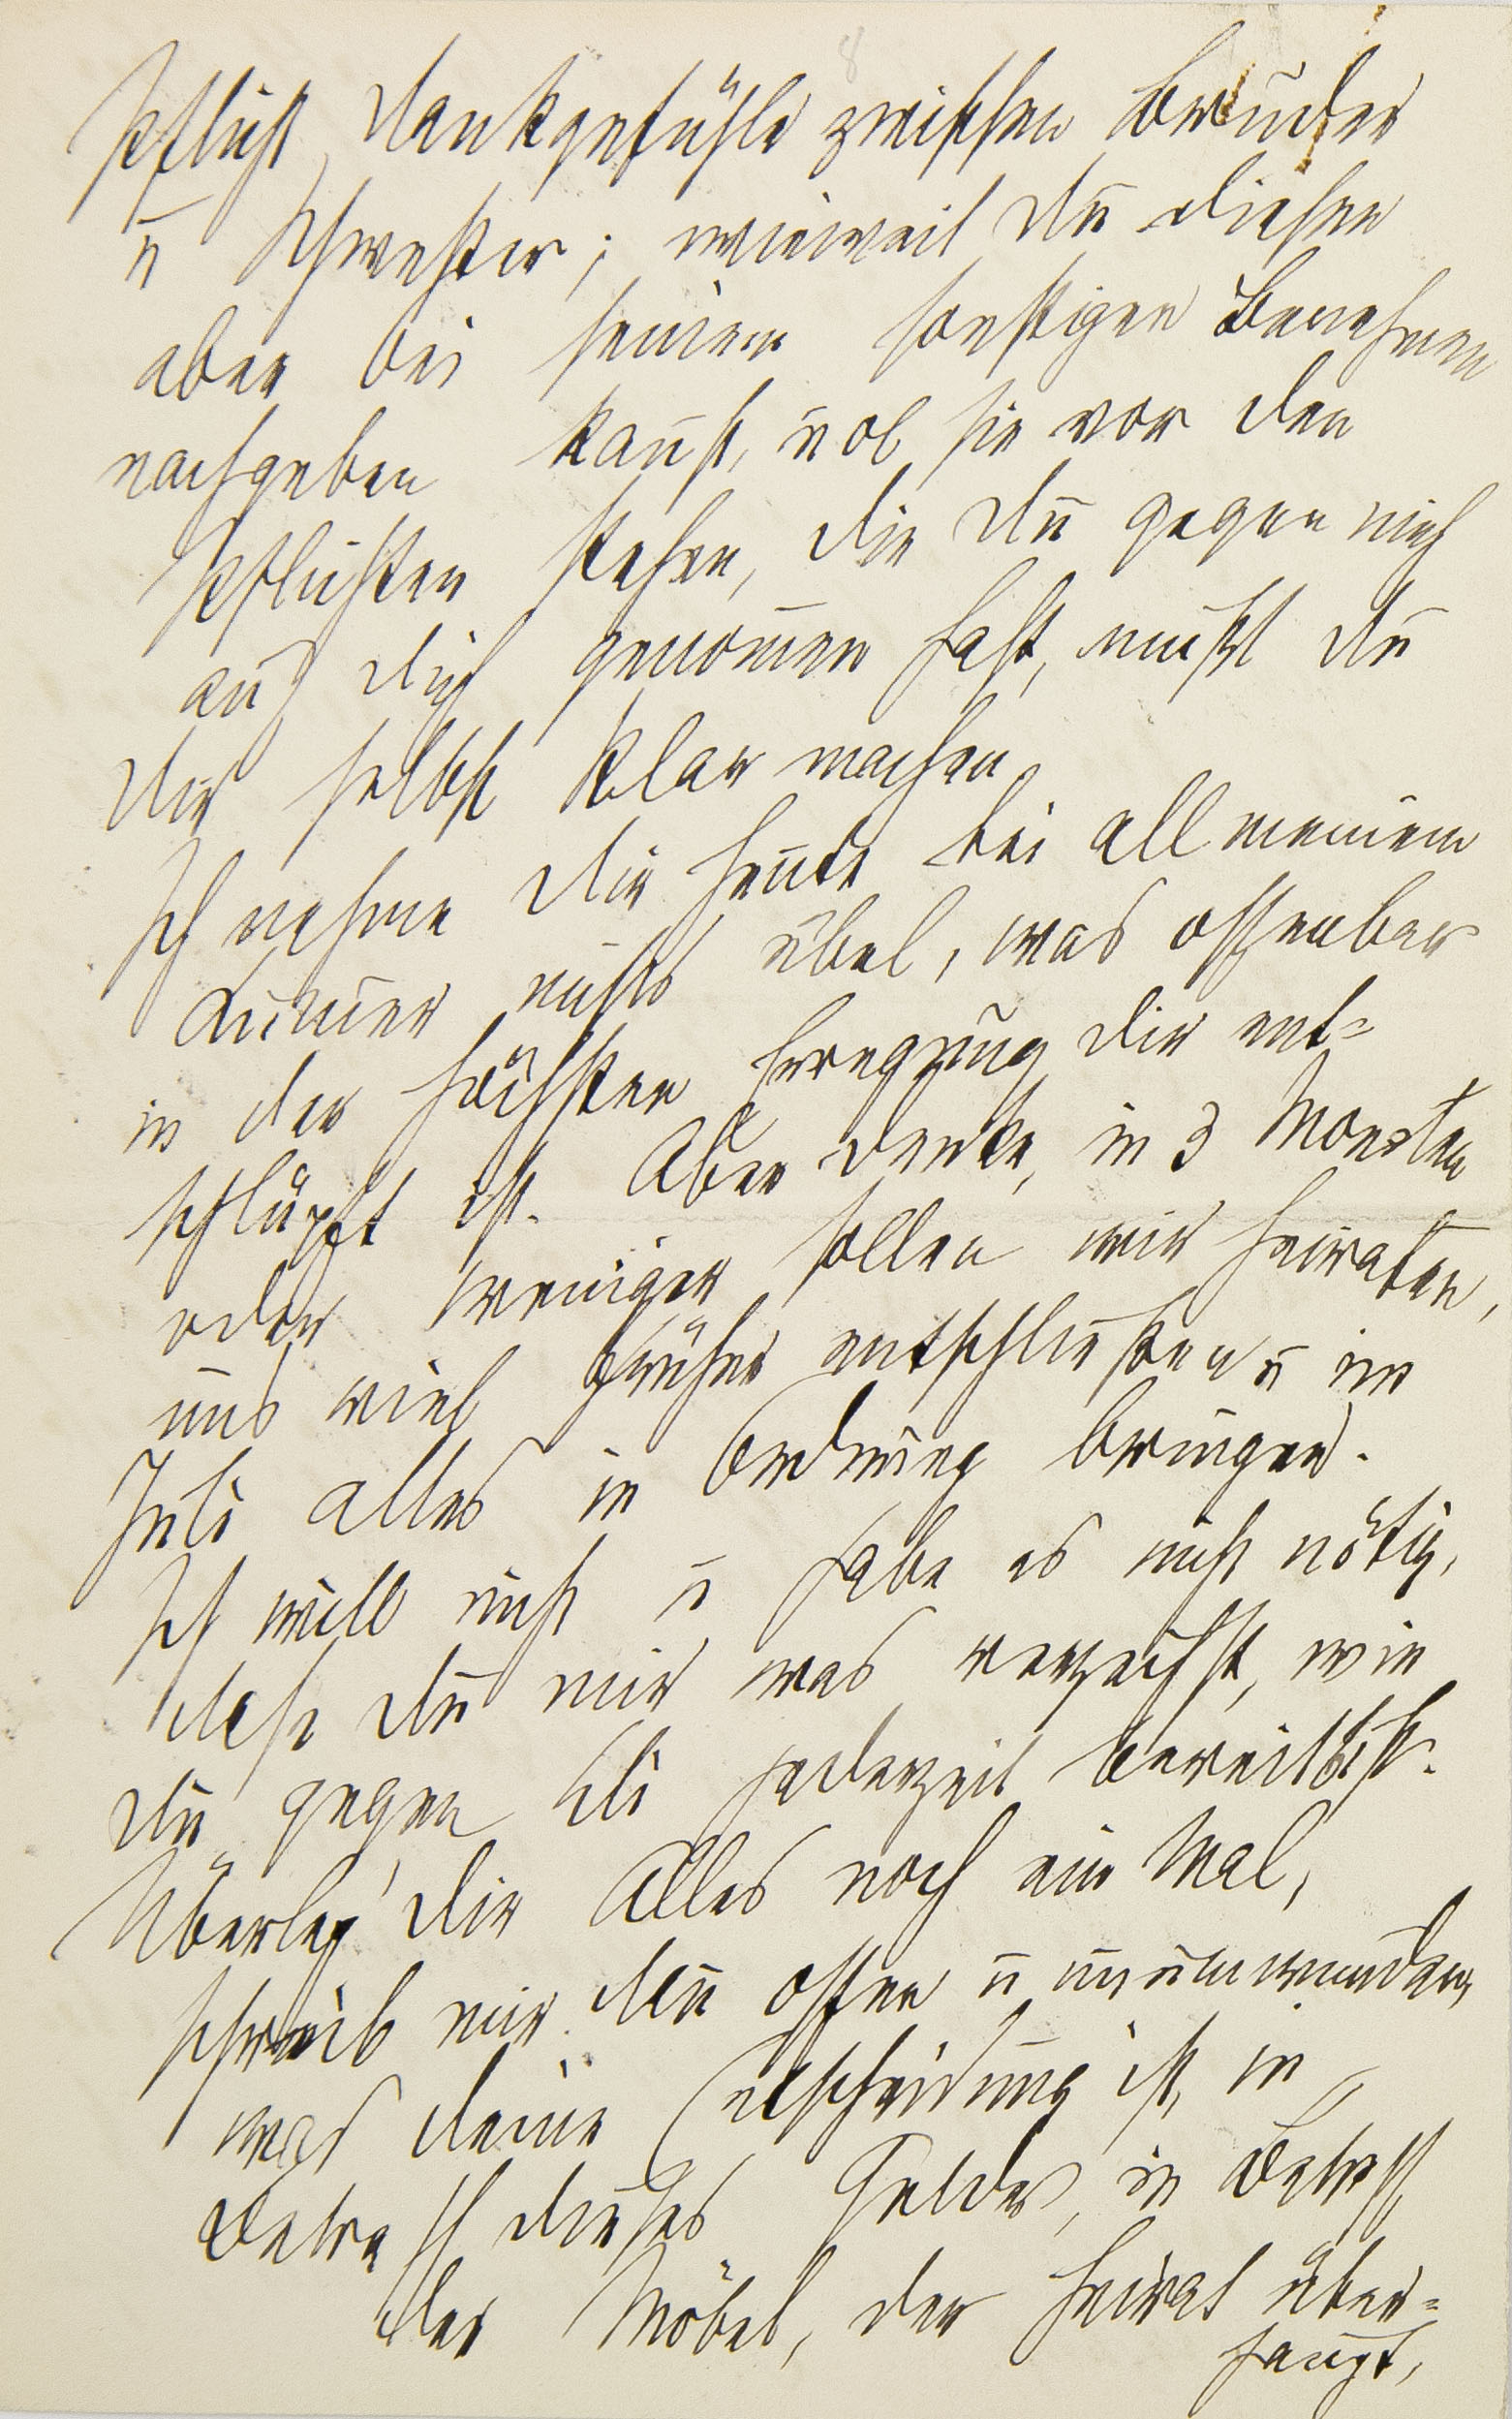 8
Pflicht, Dankgefühle zwischen Bruder
u Schwester; wieweit Du diesen
aber bei seinem sonstigen Benehmen
nachgeben kannst, u ob sie vor den
Pflichten stehen, die Du gegen mich
auf Dich genom̄en hast, mußt Du
Dir selbst klar machen.
Ich nehme Dir heute bei all meinem
Kum̄er nichts übel, was offenbar
in der höchsten Erregung Dir ent-
schlüpft ist. Aber denke, in 3 Monaten
oder weniger sollen wir heiraten,
uns viel früher entschließen u im
Juli alles in Ordnung bringen.
Ich will nicht u habe es nicht nötig,
daß Du mir was verzeihst, wie
Du gegen Eli jederzeit bereit bist.
Überleg' Dir Alles noch ein Mal,
schreib mir dann offen u unumwunden,
was deine Entscheidung ist, in
Betreff dieses Geldes, in Betreff
der Möbel, der Heirat über-
haupt,